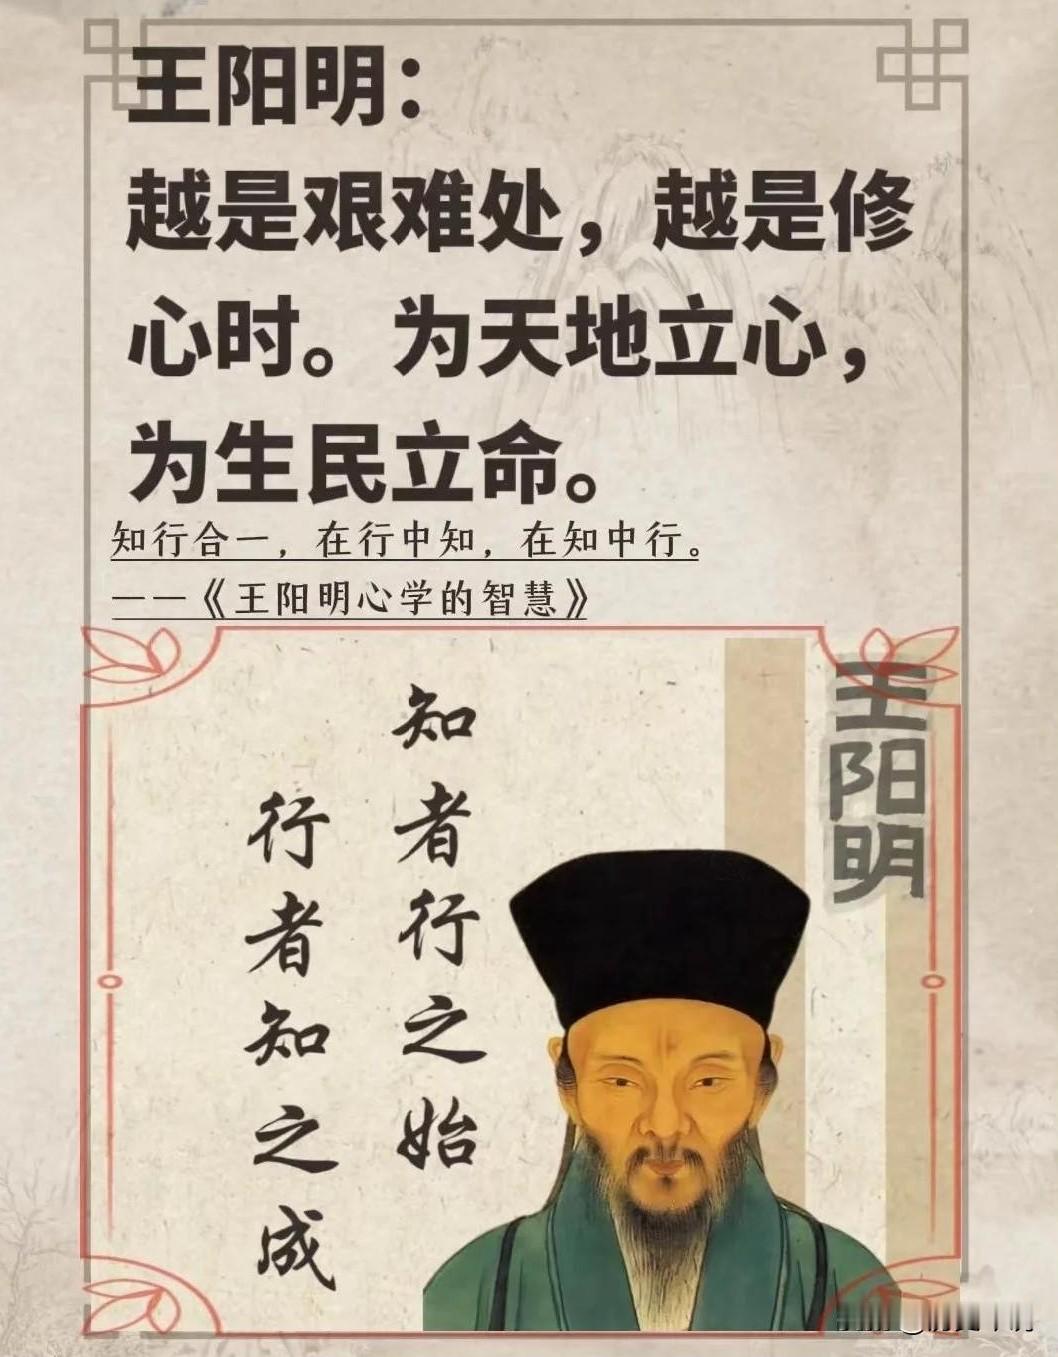 王阳明：
越是艰难处，越是修
心时。为天地立心，
为生民立命。
知行合一，在行中知，在知中行。
——《王阳明心学的智慧》
王阳明
知者行之始
行者知之成